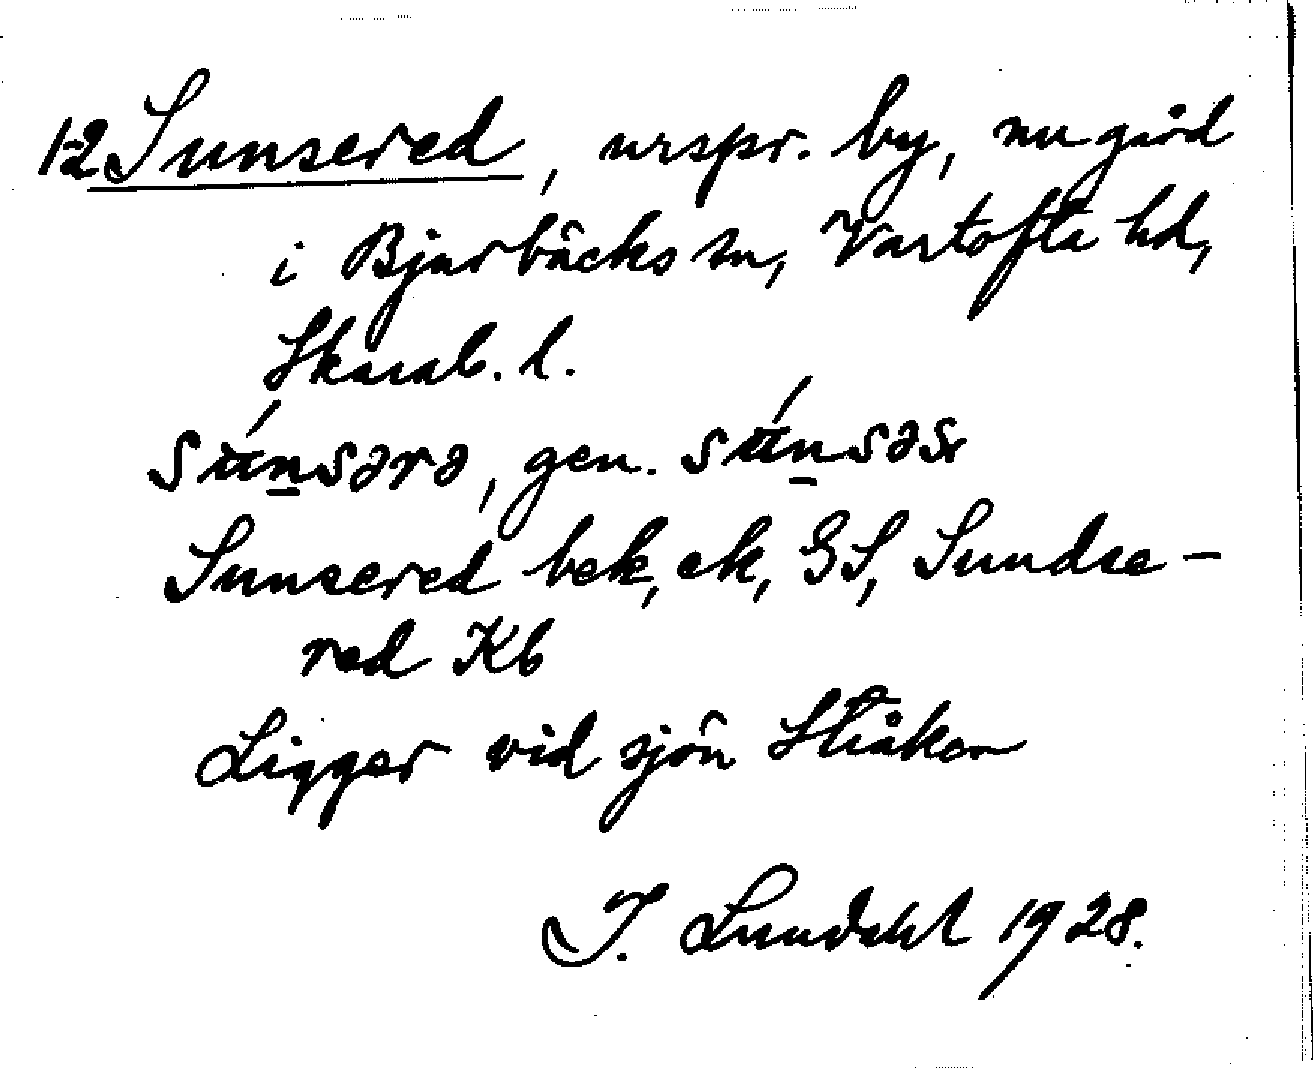 1-2 Sunsered, urspr. by, nu gård
i Bjurbäcks sn, Vartofta hd,
Skarab. l.
sú̵nsərə, gen. sú̵nsəs
Sunsered bek, ek, GS, Sundse-
red Kb
Ligger vid sjön Stråken
I. Lundahl 1928.